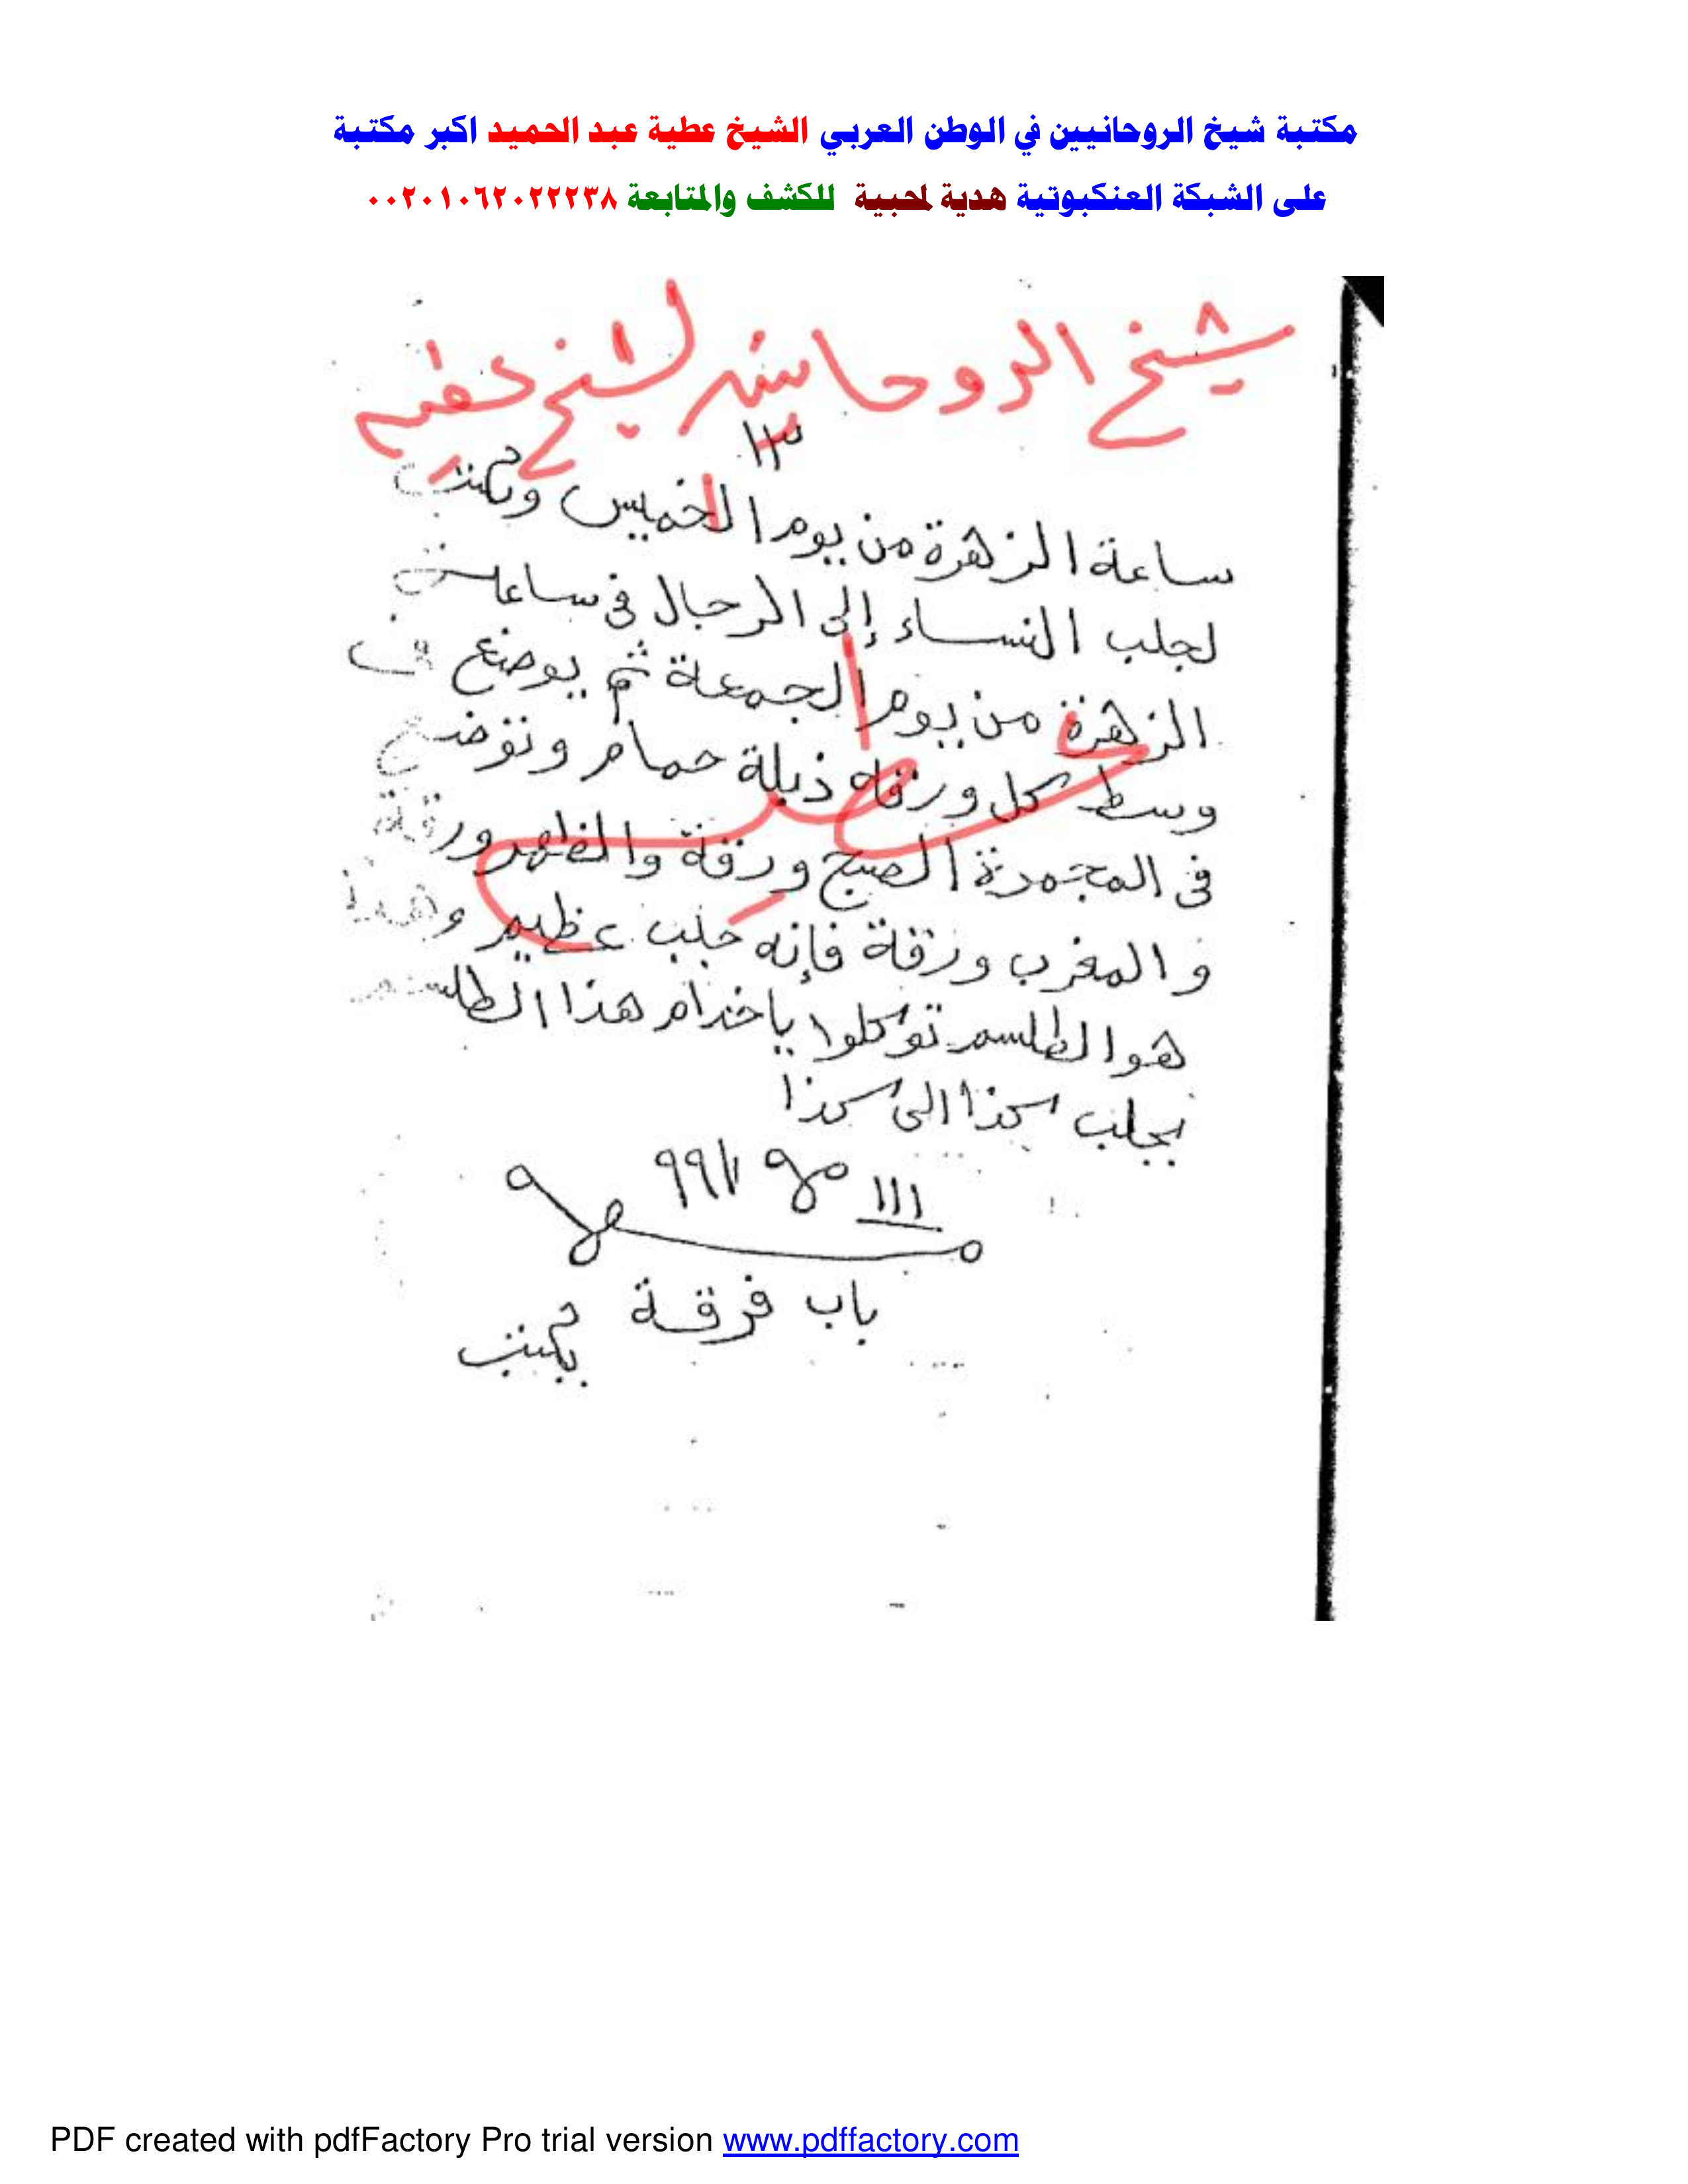 مكتبة شيخ الروحانيين في الوطن العربي الشيخ عطية عبد الحميد اكبر مكتبة
على الشبكة العنكبوتية هدية لمحبية للكشف والمتابعة ٠٠٢٠١٠٦٢٠٢٢٢٣٨
شيخ الروحانين الشيخ عطيه
١٣
ساعة الزهرة من يوم الخميس وتكتب
لجلب النساء إلى الرجال فى ساعات
الزهرة من يوم الجمعة ثم يوضع فى
وسط كل ورقه ذبلة حمام وتوضع
فى المجمرة الصبح ورقة والظهر ورقة
والمغرب ورقة فإنه جلب عظيم وهذا
هو الطلسم توكلوا ياخدام هذا الطلسم
بجلب كذا الى كذا
١١١
باب فرقة يكتب
PDF created with pdfFactory Pro trial version www.pdffactory.com